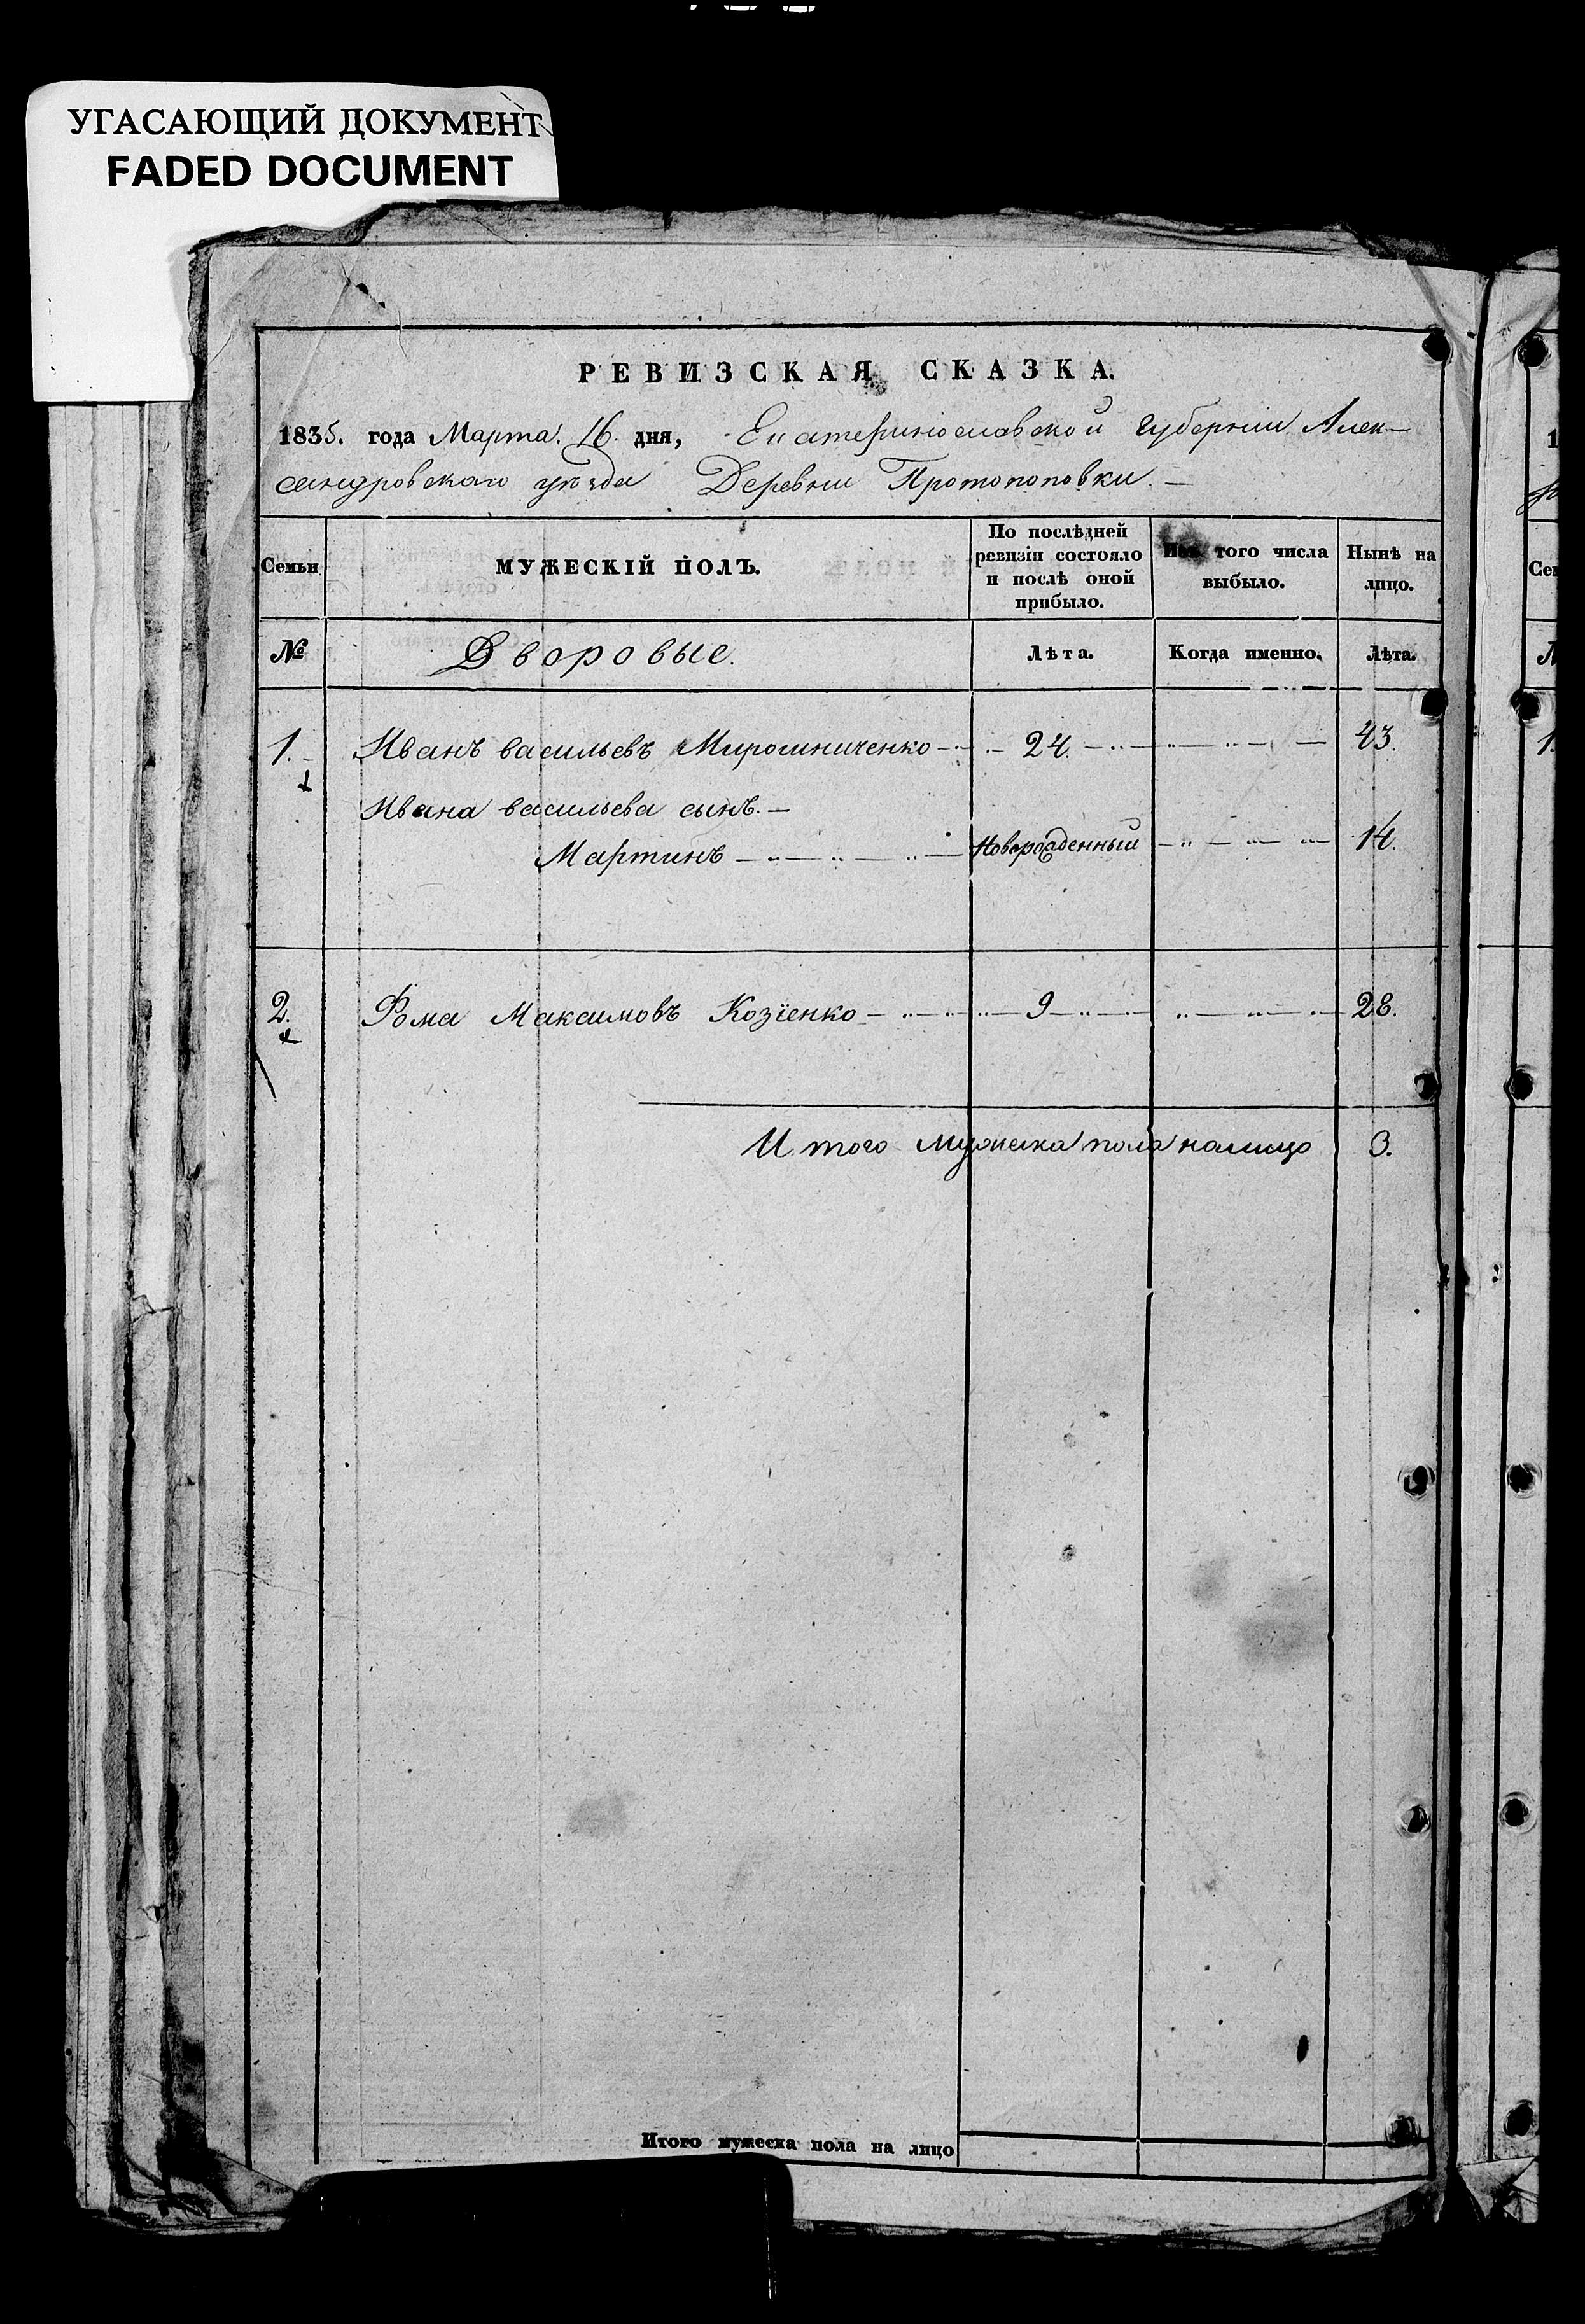 УГАСАЮЩИЙ ДОКУМЕНТ
FADED DOCUMENT
РЕВИЗСКАЯ СКАЗКА.
1835. года Марта. 16. дня, Екатеринославской Губернии Алек-
сандровскаго уѣзда Деревни Протопоповки. —
Семьи МУЖЕСКІЙ ПОЛЪ. По послѣдней ревизіи состояло и послѣ оной прибыло. Изъ того числа выбыло. Нынѣ на лицо.
№ Дворовые. Лѣта. Когда именно. Лѣта.
1. Иванъ васильевъ Мирошниченко 24. 43.
Ивана васильева сынъ. —
Мартинъ Новорожденный 14.
2. Фома Максимовъ Козіенко 9 28.
Итого Мужеска пола налицо 3.
Итого мужеска пола на лицо